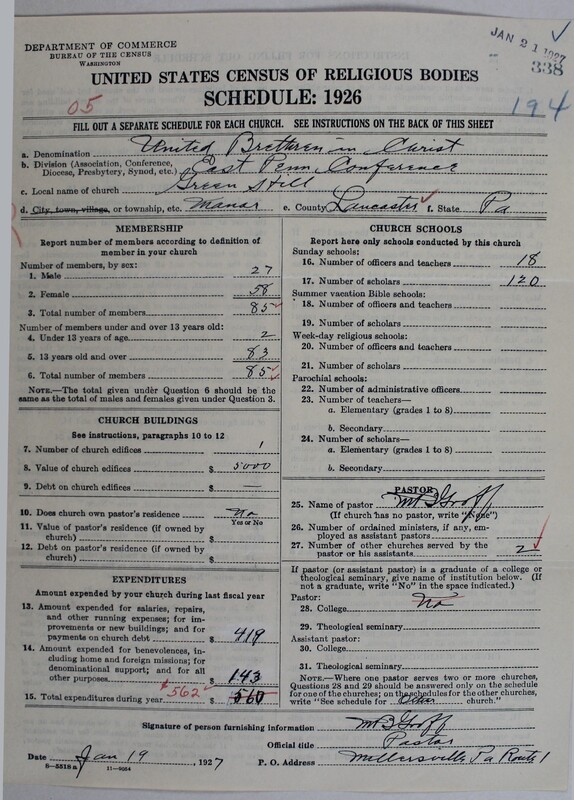 JAN 21 1927
338
DEPARTMENT OF COMMERCE
BUREAU OF THE CENSUS
WASHINGTON
UNITED STATES CENSUS OF RELIGIOUS BODIES
SCHEDULE: 1926
05
194
FILL OUT A SEPARATE SCHEDULE FOR EACH CHURCH. SEE INSTRUCTIONS ON THE BACK OF THIS SHEET
a. Denomination United Brethren in Christ
b. Division (Association, Conference, Diocese, Presbytery, Synod, etc.) East Penn Conference
c. Local name of church Green Hill
d. City, town, village, or township, etc. Manor e. County Lancaster f. State Pa
MEMBERSHIP
Report number of members according to definition of member in your church
Number of members, by sex:
1. Male 27
2. Female 58
3. Total number of members 85
Number of members under and over 13 years old:
4. Under 13 years of age 2
5. 13 years old and over 83
6. Total number of members 85
NOTE.—The total given under Question 6 should be the same as the total of males and females given under Question 3.
CHURCH BUILDINGS
See instructions, paragraphs 10 to 12
7. Number of church edifices 1
8. Value of church edifices $ 5000
9. Debt on church edifices $ —
10. Does church own pastor's residence? No
Yes or No
11. Value of pastor's residence (if owned by church) $
12. Debt on pastor's residence (if owned by church) $
EXPENDITURES
Amount expended by your church during last fiscal year
13. Amount expended for salaries, repairs, and other running expenses; for improvements or new buildings; and for payments on church debt $ 419
14. Amount expended for benevolences, including home and foreign missions; for denominational support; and for all other purposes $ 143
15. Total expenditures during year $562 560
CHURCH SCHOOLS
Report here only schools conducted by this church
Sunday schools:
16. Number of officers and teachers 18
17. Number of scholars 120
Summer vacation Bible schools:
18. Number of officers and teachers
19. Number of scholars
Week-day religious schools:
20. Number of officers and teachers
21. Number of scholars
Parochial schools:
22. Number of administrative officers
23. Number of teachers—
a. Elementary (grades 1 to 8)
b. Secondary
24. Number of scholars—
a. Elementary (grades 1 to 8)
b. Secondary
PASTOR
25. Name of pastor
(If church has no pastor, write "None")
26. Number of ordained ministers, if any, employed as assistant pastors
27. Number of other churches served by the pastor or his assistants 2
If pastor (or assistant pastor) is a graduate of a college or theological seminary, give name of institution below. (If not a graduate, write "No" in the space indicated.)
Pastor:
28. College No
29. Theological seminary
Assistant pastor:
30. College
31. Theological seminary
NOTE.—Where one pastor serves two or more churches, Questions 28 and 29 should be answered only on the schedule for one of the churches; on the schedules for the other churches, write "See schedule for church."
Signature of person furnishing information
Official title Pastor
Date Jan 19, 1927 P. O. Address Millersville Pa Route 1
8—5518 a 11—9064